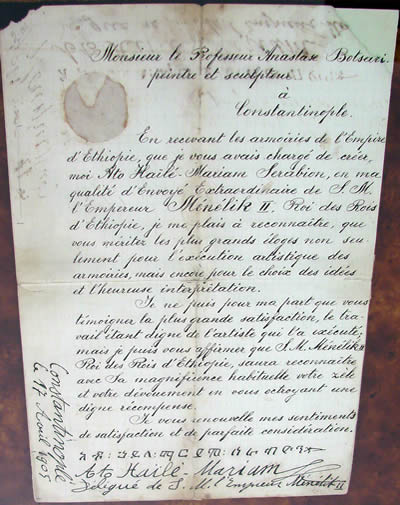 Monsieur le Professeur Anastase Botsari
peintre et sculpteur
à
Constantinople.
En recevant les armoiries de l'Empire
d'Ethiopie, que je vous avais chargé de créer,
moi Ato Hailé-Mariam Serabion, en ma
qualité d'Envoyé Extraordinaire de S. M.
l'Empereur Ménélik II. Roi des Rois
d'Ethiopie, je me plais à reconnaître, que
vous méritez les plus grands éloges non seu-
lement pour l'exécution artistique des
armoiries, mais encore pour le choix des idées
et l'heureuse interprétation.
Je ne puis pour ma part que vous
témoigner la plus grande satisfaction, le tra-
vail étant digne de l'artiste qui l'a exécuté;
mais je puis vous affirmer que S. M. Ménélik II
Roi des Rois d'Ethiopie, saura reconnaître
avec Sa magnificence habituelle votre zèle
et votre dévouement en vous octroyant une
digne récompense.
Je vous renouvelle mes sentiments
de satisfaction et de parfaite considération.
Ato Hailé Mariam
Délégué de S. M. l'Empereur Ménélik II
Constantinople
le 17 Août 1905